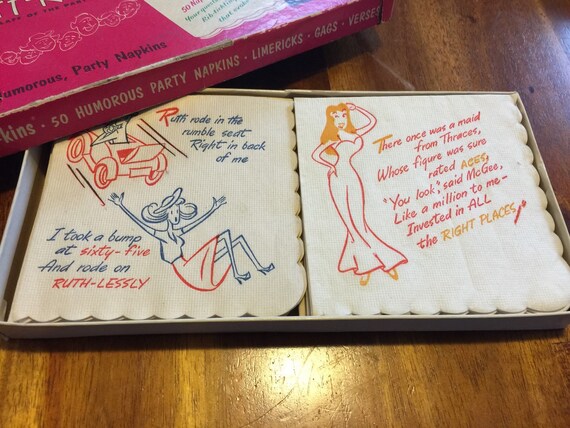 50 HUMOROUS PARTY NAPKINS · LIMERICKS · GAGS · VERSES
Humorous, Party Napkins
Ruth rode in the
rumble seat
Right in back
of me
I took a bump
at sixty-five
And rode on
RUTH-LESSLY
There once was a maid
from Thraces,
Whose figure was sure
rated ACES,
"You look", said McGee,
Like a million to me-
Invested in ALL
the RIGHT PLACES!"